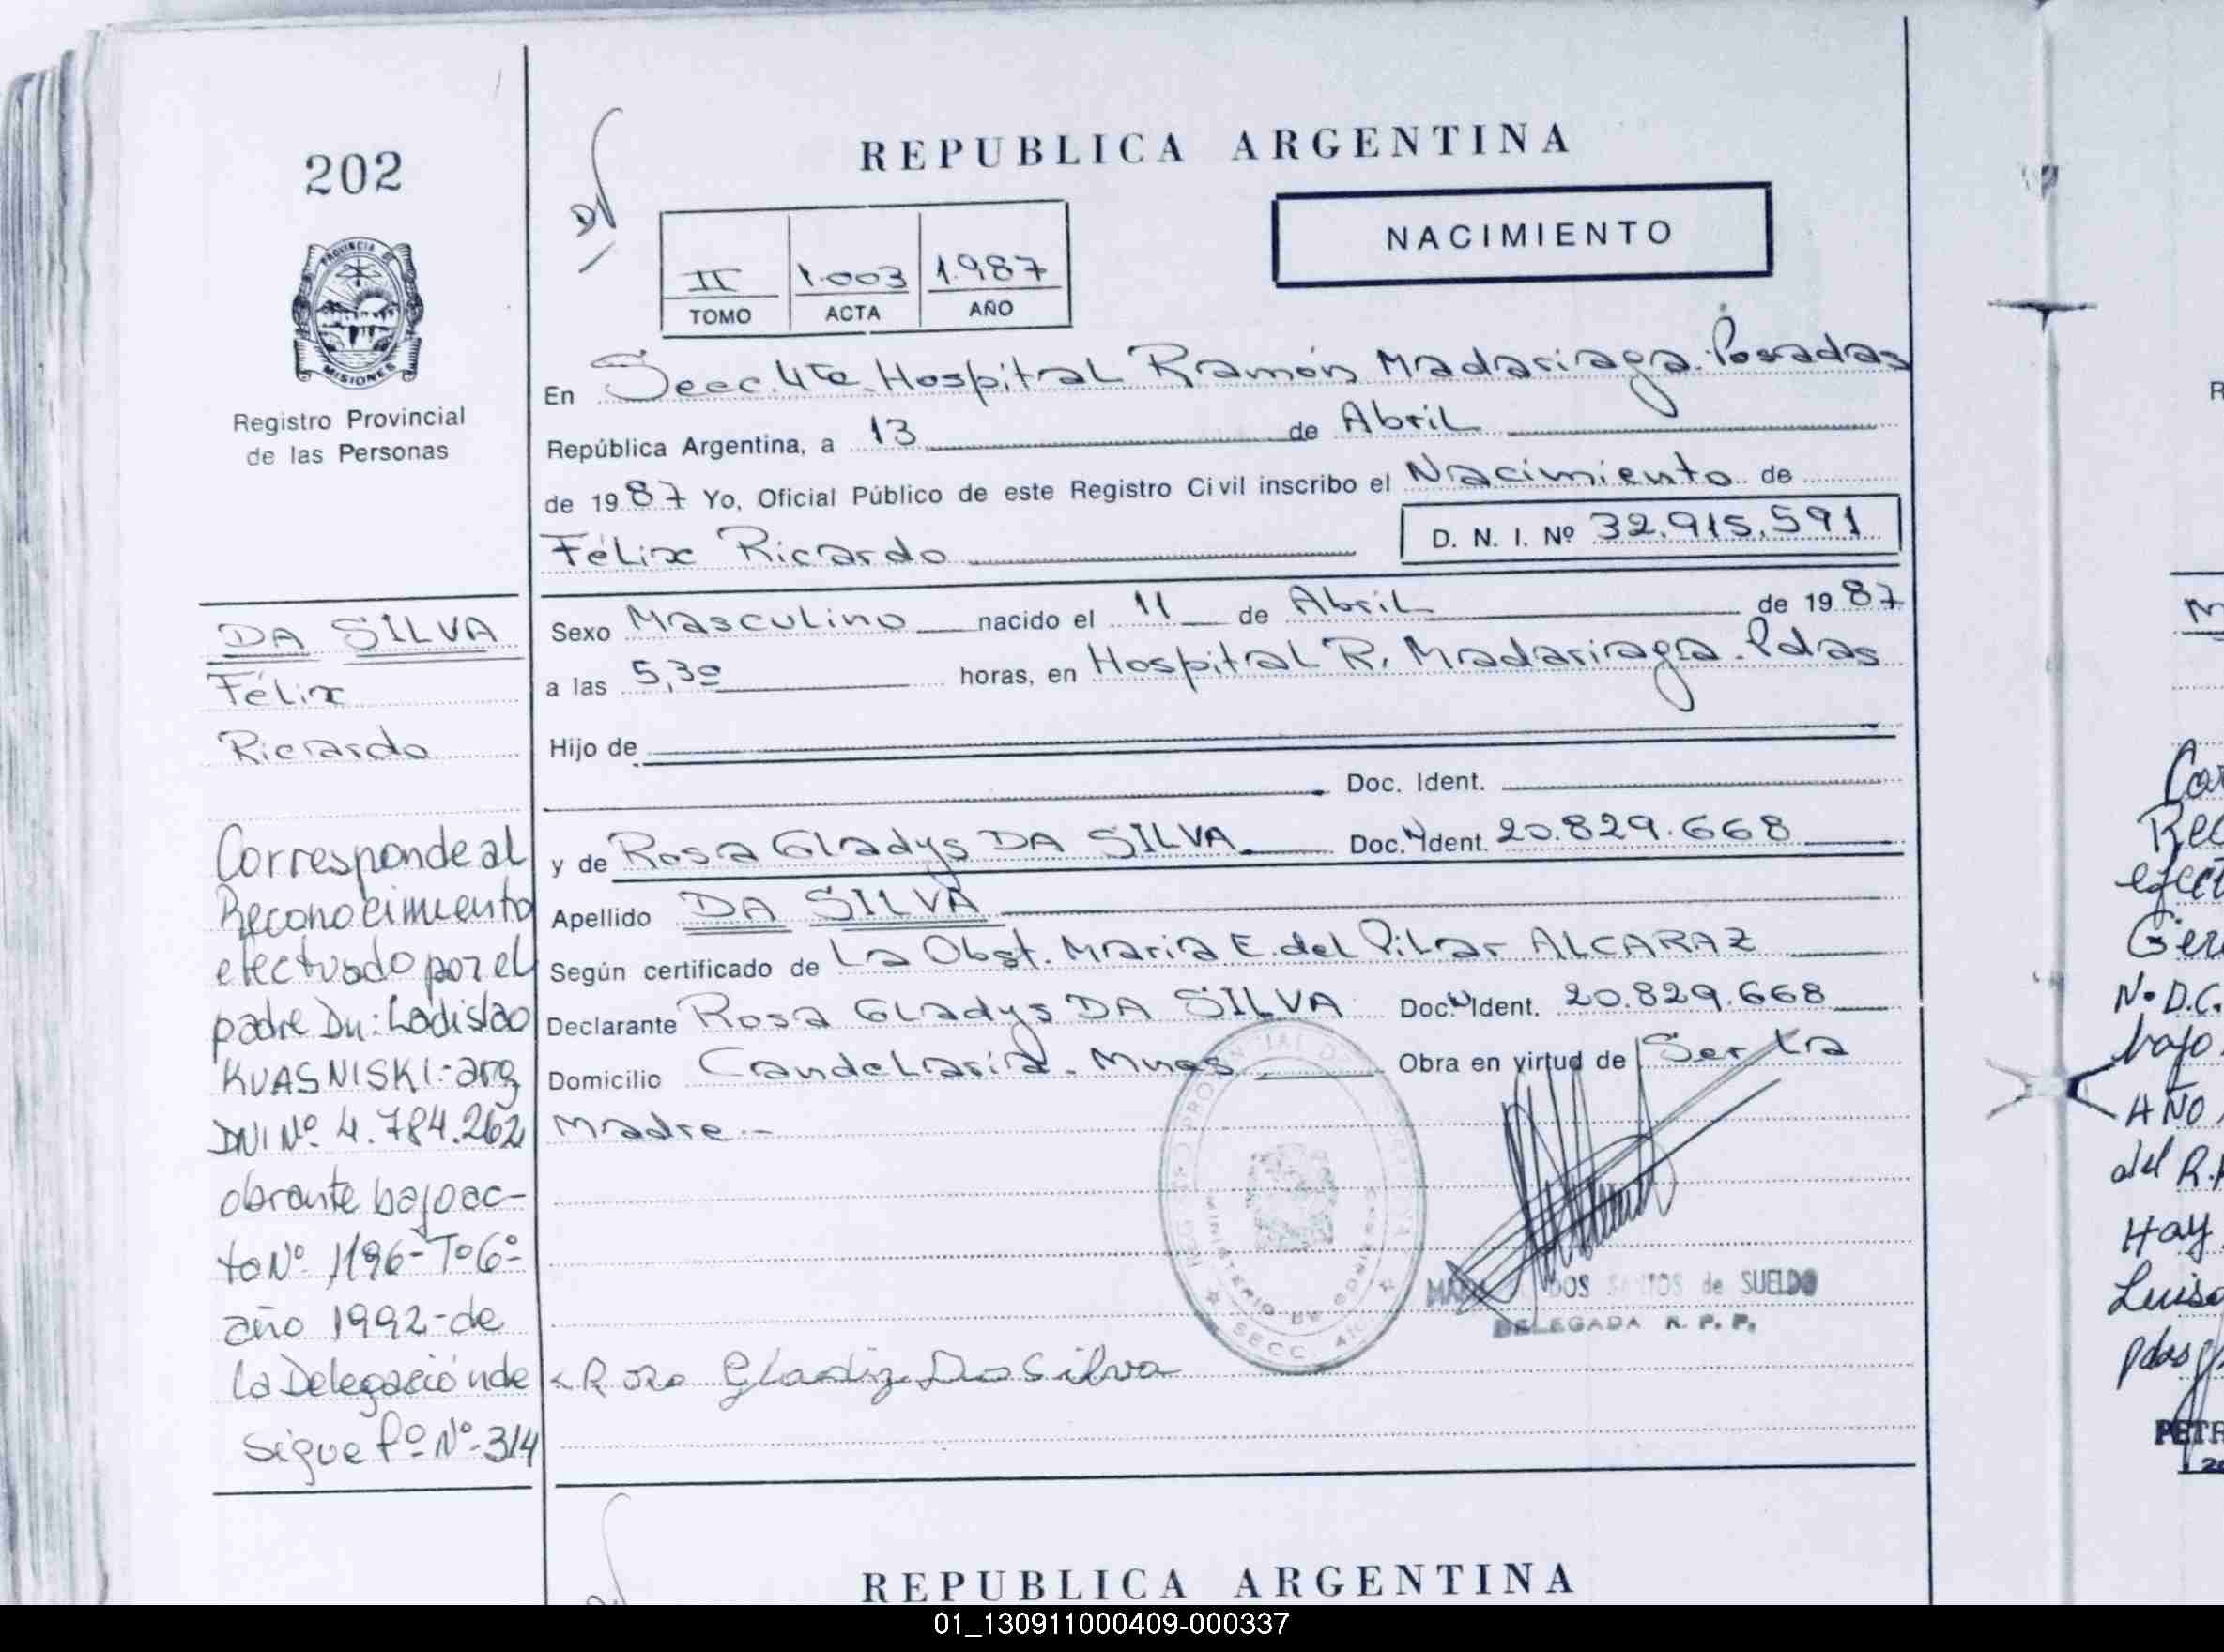 202
PROVINCIA DE
MISIONES
Registro Provincial
de las Personas
DA SILVA
Félix
Ricardo
Corresponde al
Reconocimiento
efectuado por el
padre Dn: Ladislao
KUASNISKI-arg
DNI Nº 4.784.262
obrante bajo ac-
ta Nº 1196-Tº6º
año 1992-de
la Delegación de
sigue fº Nº 314
REPUBLICA ARGENTINA
NACIMIENTO
II 1.003 1.987
TOMO ACTA AÑO
En Secc. 4ta. Hospital Ramón Madariaga. Posadas
República Argentina, a 13 de Abril
de 1987 Yo, Oficial Público de este Registro Civil inscribo el Nacimiento de
Félix Ricardo D. N. I. Nº 32.915.591
Sexo Masculino nacido el 11 de Abril de 1987
a las 5,30 horas, en Hospital R. Madariaga. Pdas
Hijo de
Doc. Ident.
y de Rosa Gladys DA SILVA. Doc. Ident. 20.829.668
Apellido DA SILVA
Según certificado de La Obst. Maria E. del Pilar ALCARAZ
Declarante Rosa Gladys DA SILVA Doc. Ident. 20.829.668
Domicilio Candelaria. Mnes Obra en virtud de Ser La
Madre.-
MINISTERIO DE GOBIERNO
SECC. 4
DOS SANTOS de SUELDO
DELEGADA R. P. P.
Rosa Gladiz Da Silva
REPUBLICA ARGENTINA
Rec
efect
Ger
N. D.C.
bajo
AÑO
del R.
Hay
Luisa
pdas
PETR
01_130911000409-000337